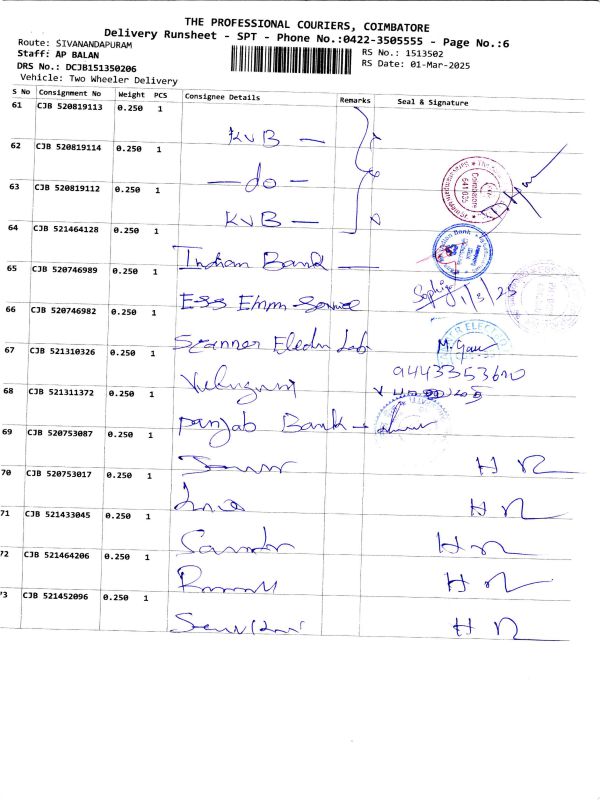 THE PROFESSIONAL COURIERS, COIMBATORE
Delivery Runsheet - SPT - Phone No.:0422-3505555 - Page No.:6
Route: SIVANANDAPURAM
RS No.: 1513502
Staff: AP BALAN
RS Date: 01-Mar-2025
DRS No.: DCJB151350206
Vehicle: Two Wheeler Delivery
S No Consignment No Weight PCS Consignee Details Remarks Seal & Signature
61 CJB 520819113 0.250 1 KVB —
62 CJB 520819114 0.250 1 — do —
63 CJB 520819112 0.250 1 KVB —
64 CJB 521464128 0.250 1 Indian Bank —
65 CJB 520746989 0.250 1 ESS Emm Service 1/3/25
66 CJB 520746982 0.250 1 Scanner Electro Lab M. Gau
67 CJB 521310326 0.250 1 9443353610
68 CJB 521311372 0.250 1 Panjab Bank —
69 CJB 520753087 0.250 1 H R
70 CJB 520753017 0.250 1 H R
71 CJB 521433045 0.250 1 H R
72 CJB 521464206 0.250 1 H R
73 CJB 521452096 0.250 1 H R